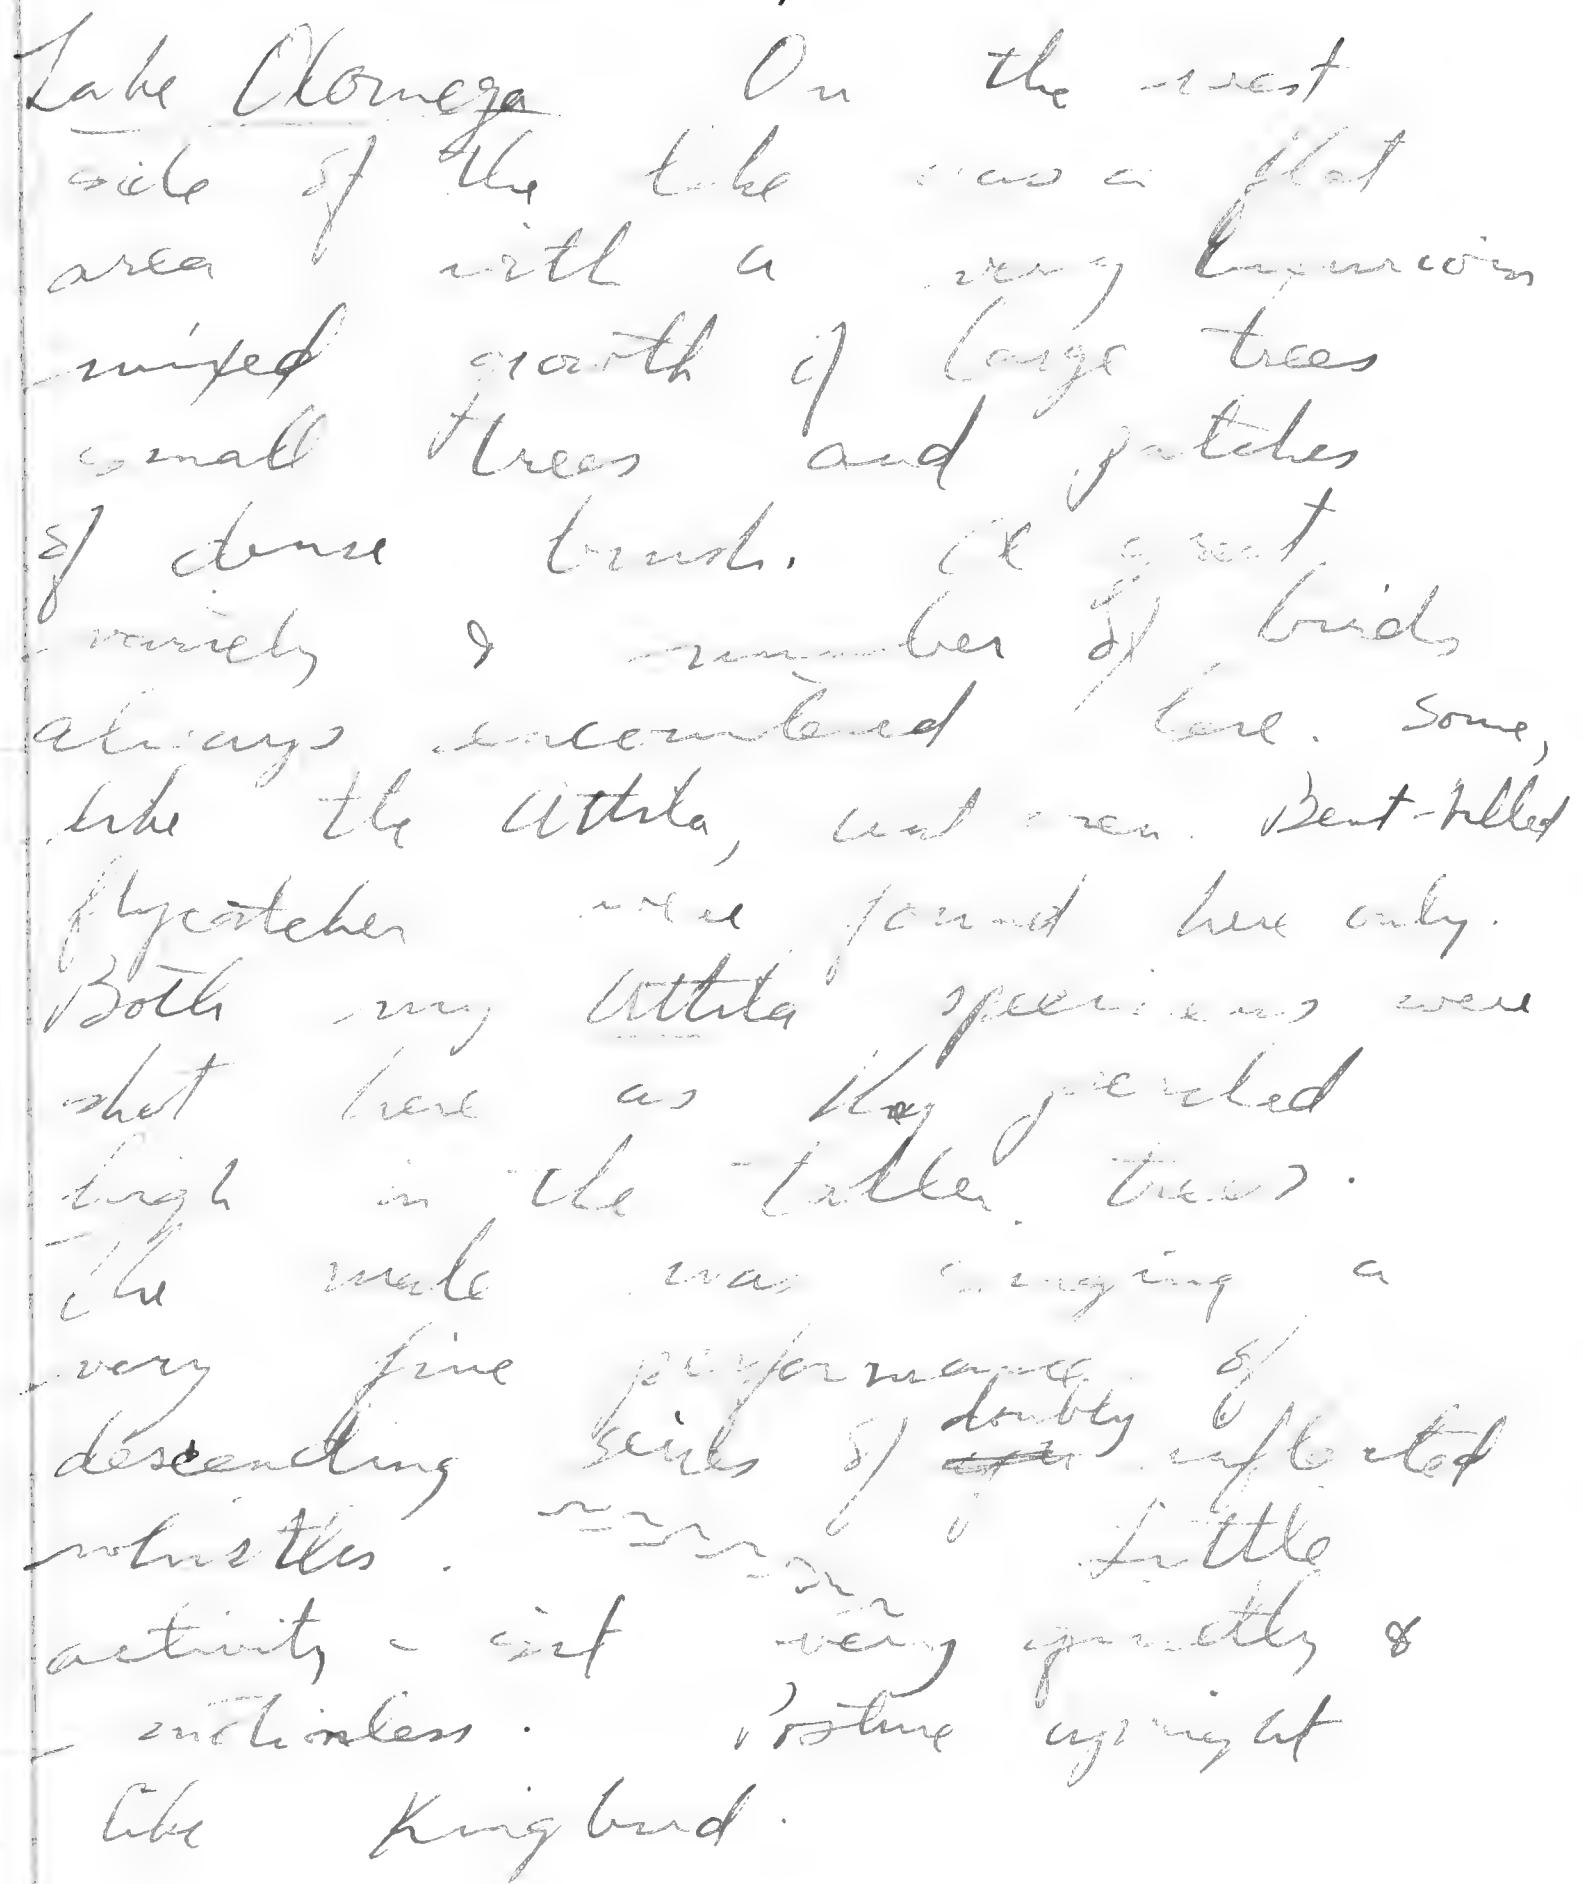 Lake Olomega On the west
side of the lake was a flat
area with a very luxurious
mixed growth of large trees
small trees and patches
of dense brush. A great
variety & number of birds
always encountered here. Some,
like the Attila, and Bent-billed
flycatcher were found here only.
Both my Attila specimens were
shot here as they perched
high in the taller trees.
The male was singing a
very fine performance of
descending series of doubly inflected
whistles. Little
activity - sit very quietly &
motionless. Posture upright
like Kingbird.